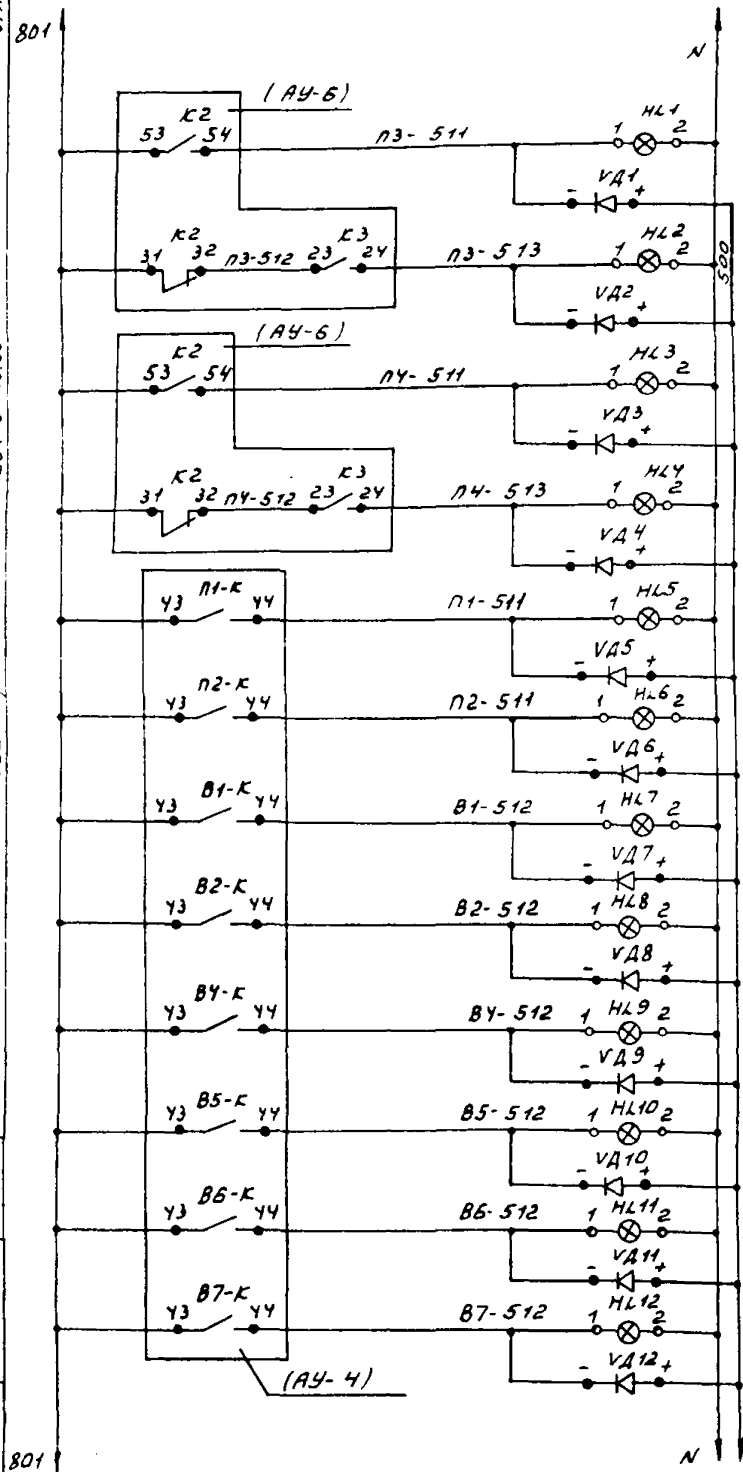 801 N
(АУ-6)
К2
53 54 П3-511 1 HL1 2
- VД1 +
К2 К3
31 32 П3-512 23 24 П3-513 1 HL2 2
500
- VД2 +
(АУ-6)
К2
53 54 П4-511 1 HL3 2
- VД3 +
К2 К3
31 32 П4-512 23 24 П4-513 1 HL4 2
- VД4 +
П1-К
43 44 П1-511 1 HL5 2
- VД5 +
П2-К
43 44 П2-511 1 HL6 2
- VД6 +
В1-К
43 44 В1-512 1 HL7 2
- VД7 +
В2-К
43 44 В2-512 1 HL8 2
- VД8 +
В4-К
43 44 В4-512 1 HL9 2
- VД9 +
В5-К
43 44 В5-512 1 HL10 2
- VД10 +
В6-К
43 44 В6-512 1 HL11 2
- VД11 +
В7-К
43 44 В7-512 1 HL12 2
- VД12 +
(АУ-4)
801 N